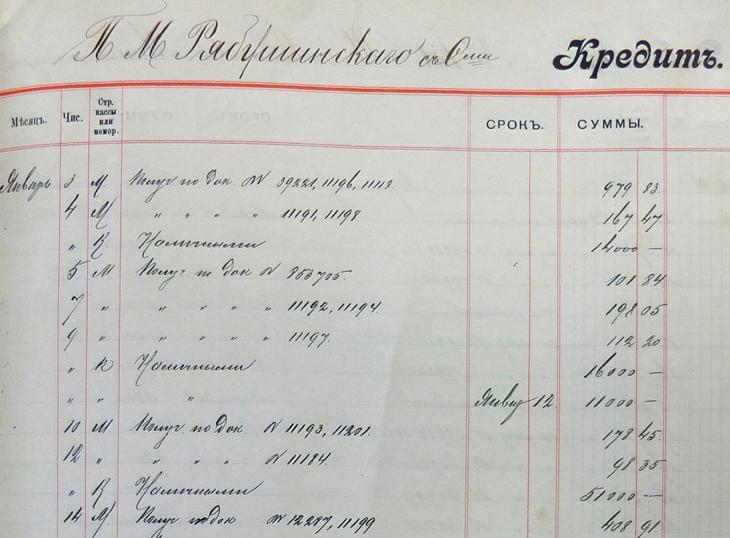 П. М. Рябушинскаго съ С-ми Кредитъ.
Мѣсяцъ. Чис. Стр. кассы или мемор. СРОКЪ. СУММЫ.
Январь 3 М Получ по док. № 39221, 11196, 11118. 979 83
4 М " " " " 11191, 11198 167 47
" К. Наличными 14000 —
5 М Получ по док № 853705. 101 84
7 " " " " " " 11192, 11194. 198 05
9 " " " " " " 11197. 112 20
" К Наличными 16000 —
" " " Январ 12. 11000 —
10 М Получ. по док. № 11193, 11201. 178 45
12 " " " " № 11184. 98 35
" К Наличными 51000 —
14 М. Получ по док № 12287, 11199 408 91